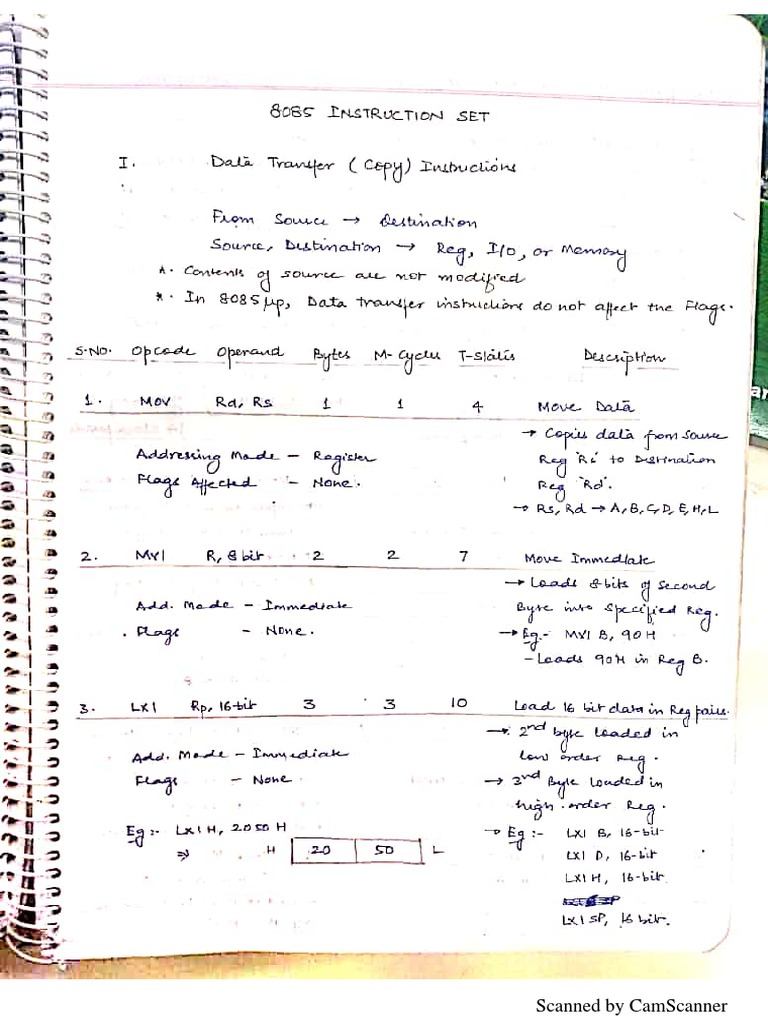 8085 INSTRUCTION SET
I. Data Transfer (Copy) Instructions
From Source → Destination
Source, Destination → Reg, I/O, or Memory
*. Contents of source are not modified
*. In 8085 μp, Data transfer instructions do not affect the Flags.
S.NO. Opcode Operand Bytes M-Cycles T-States Description
1. MOV Rd, Rs 1 1 4 Move Data
→ Copies data from source
Addressing Mode – Register Reg 'Rs' to Destination
Flags Affected – None. Reg 'Rd'.
→ Rs, Rd → A, B, C, D, E, H, L
2. MVI R, 8 bit 2 2 7 Move Immediate
→ Loads 8 bits of second
Add. Mode – Immediate Byte into specified Reg.
Flags – None. → Eg.- MVI B, 90 H
– Loads 90H in Reg B.
3. LXI Rp, 16-bit 3 3 10 Load 16 bit data in Reg pairs.
→ 2nd byte loaded in
Add. Mode – Immediate low order Reg.
Flags – None → 3rd Byte loaded in
high order Reg.
Eg :- LXI H, 2050 H → Eg :- LXI B, 16-bit
⇒ H 20 50 L LXI D, 16-bit
LXI H, 16-bit
LXI SP, 16 bit.
Scanned by CamScanner